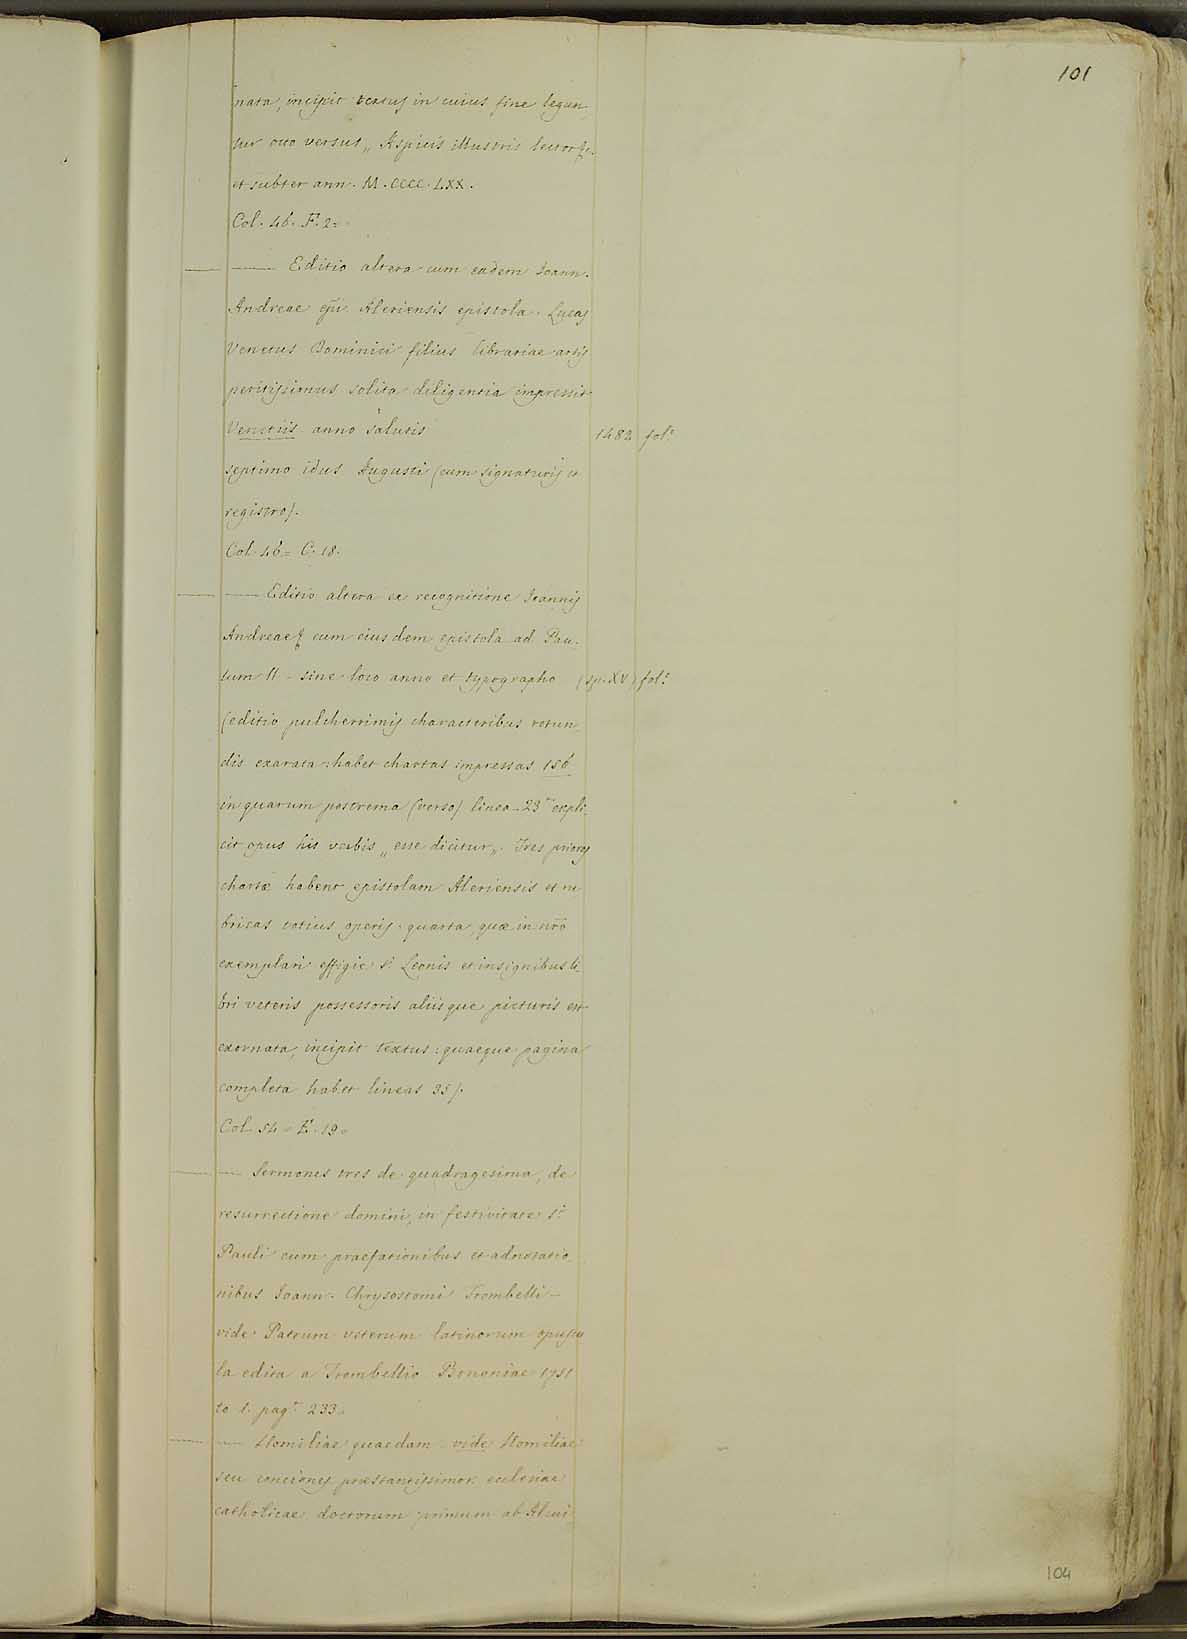 101
nata, incipit textus in cuius fine legun-
tur octo versus „ Aspicis illustris lector &c.
et subter ann. M.CCCC.LXX.
Col. 46. F. 2.
—— Editio altera cum eadem Joann.
Andreae epi Aleriensis epistola. Lucas
Venetus Dominici filius librariae artis
peritissimus solita diligentia impressit
Venetiis anno salutis 1482 fol.º
septimo idus Augusti (cum signaturis et
registro).
Col. 46. C. 18.
—— Editio altera ex recognitione Joannis
Andreae & cum eiusdem epistola ad Pau-
lum II - sine loco anno et typographo (sp. XV) fol.º
(editio pulcherrimis characteribus rotun-
dis exarata: habet chartas impressas 186
in quarum postrema (verso) linea 23 expli-
cit opus his verbis „ esse dicitur „. Tres priores
chartæ habent epistolam Aleriensis et ru-
bricas totius operis: quarta, quæ in nrō
exemplari effigie s. Leonis et insignibus li-
bri veteris possessoris aliisque picturis est
exornata, incipit textus: quaeque pagina
completa habet lineas 35).
Col. 54. E. 19.
—— Sermones tres de quadragesima, de
resurrectione domini, in festivitate s.
Pauli cum praefationibus et adnotatio-
nibus Joann. Chrysostomi Trombelli -
vide Patrum veterum latinorum opuscu
la edita a Trombellio Bononiae 1751
to 1. pag. 233.
—— Homiliae quaedam. vide Homiliae
seu conciones præstantissimor. ecclesiae
catholicae doctorum primum ab Alcui-
104